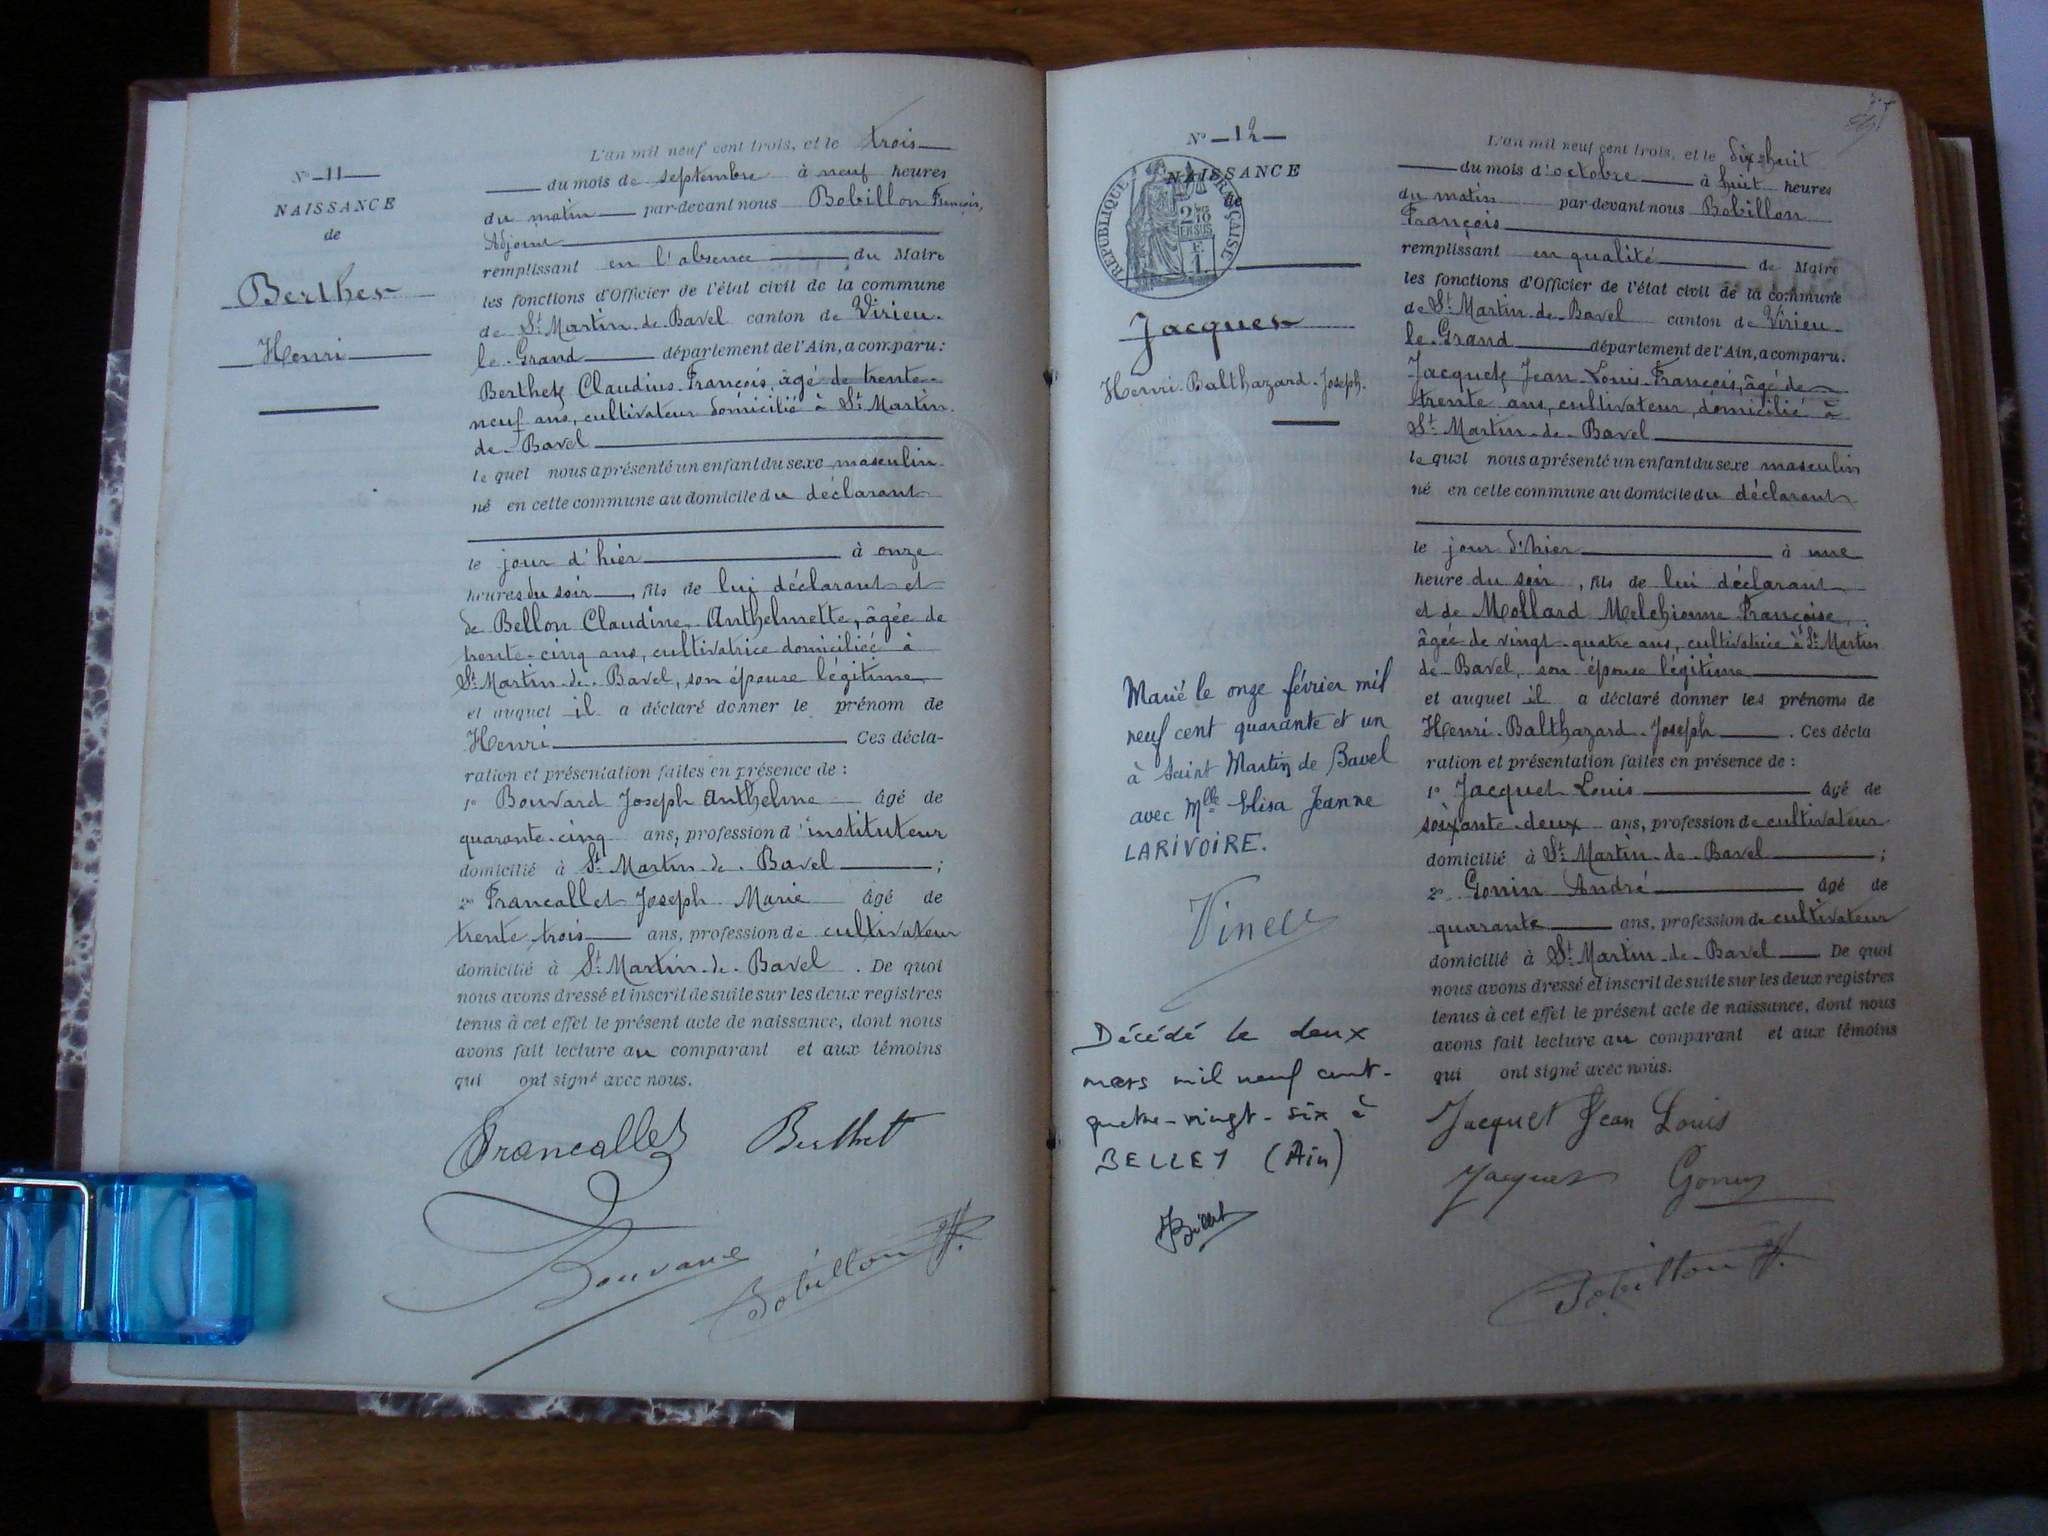 L'an mil neuf cent trois, et le trois
N° 11
du mois de septembre à neuf heures
NAISSANCE
du matin par-devant nous Bobillon François,
de
Adjoint
remplissant en l'absence du Maire
Berthet
les fonctions d'Officier de l'état civil de la commune
de St Martin-de-Bavel canton de Virieu-
Henri
le-Grand département de l'Ain, a comparu:
Berthet Claudius-François, âgé de trente-
neuf ans, cultivateur domicilié à St Martin-
de-Bavel
lequel nous a présenté un enfant du sexe masculin
né en cette commune au domicile du déclarant
le jour d'hier à onze
heures du soir, fils de lui déclarant et
de Bellon Claudine-Anthelmette, âgée de
trente-cinq ans, cultivatrice domiciliée à
St Martin-de-Bavel, son épouse légitime
et auquel il a déclaré donner le prénom de
Henri Ces décla-
ration et présentation faites en présence de :
1° Bouvard Joseph Anthelme âgé de
quarante-cinq ans, profession d'instituteur
domicilié à St Martin-de-Bavel ;
2° Francallet Joseph Marie âgé de
trente-trois ans, profession de cultivateur
domicilié à St Martin-de-Bavel. De quoi
nous avons dressé et inscrit de suite sur les deux registres
tenus à cet effet le présent acte de naissance, dont nous
avons fait lecture au comparant et aux témoins
qui ont signé avec nous.
Francallet Berthet
Bouvard
Bobillon F.
N° 12
NAISSANCE
de
RÉPUBLIQUE FRANÇAISE
2/10 EN SUS
Jacquet
Henri-Balthazard-Joseph.
Marié le onze février mil
neuf cent quarante et un
à Saint Martin de Bavel
avec Mlle Elisa Jeanne
LARIVOIRE.
Décédé le deux
mars mil neuf cent-
quatre-vingt-six à
BELLEY (Ain)
L'an mil neuf cent trois, et le dix-huit
du mois d'octobre à huit heures
du matin par-devant nous Bobillon
François
remplissant en qualité de Maire
les fonctions d'Officier de l'état civil de la commune
de St Martin-de-Bavel canton de Virieu-
le-Grand département de l'Ain, a comparu.
Jacquet Jean-Louis-François, âgé de
trente ans, cultivateur, domicilié à
St Martin-de-Bavel
lequel nous a présenté un enfant du sexe masculin
né en cette commune au domicile du déclarant
le jour d'hier à une
heure du soir, fils de lui déclarant
et de Mollard Melchionne Françoise,
âgée de vingt-quatre ans, cultivatrice à St Martin
de-Bavel, son épouse légitime
et auquel il a déclaré donner les prénoms de
Henri-Balthazard-Joseph. Ces décla
ration et présentation faites en présence de :
1° Jacquet Louis âgé de
soixante-deux ans, profession de cultivateur
domicilié à St Martin-de-Bavel ;
2° Gonin André âgé de
quarante ans, profession de cultivateur
domicilié à St Martin-de-Bavel De quoi
nous avons dressé et inscrit de suite sur les deux registres
tenus à cet effet le présent acte de naissance, dont nous
avons fait lecture au comparant et aux témoins
qui ont signé avec nous.
Jacquet Jean Louis
Jacquet Gonin
Bobillon F.